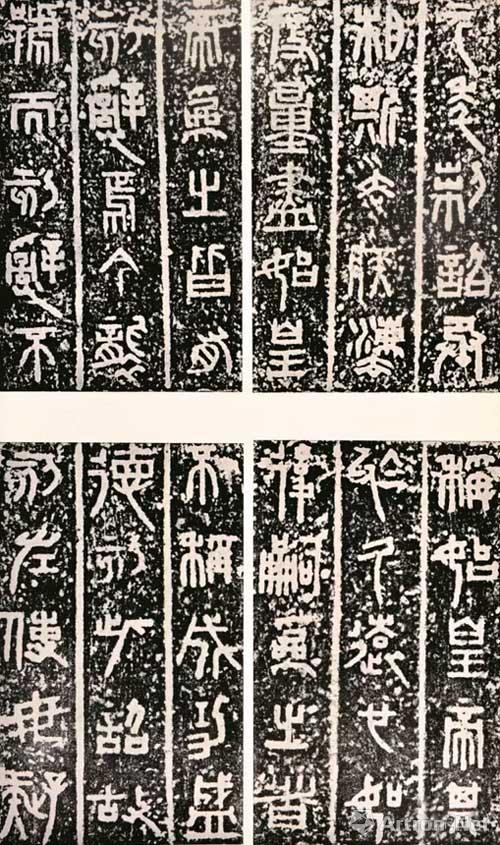 元年制詔丞
相斯去疾灋
度量盡始皇
帝為之皆有
刻辭焉今襲
號而刻辭不
稱始皇帝其
於久遠也如
後嗣為之者
不稱成功盛
德刻此詔故
刻左使毋疑
Artron.Net